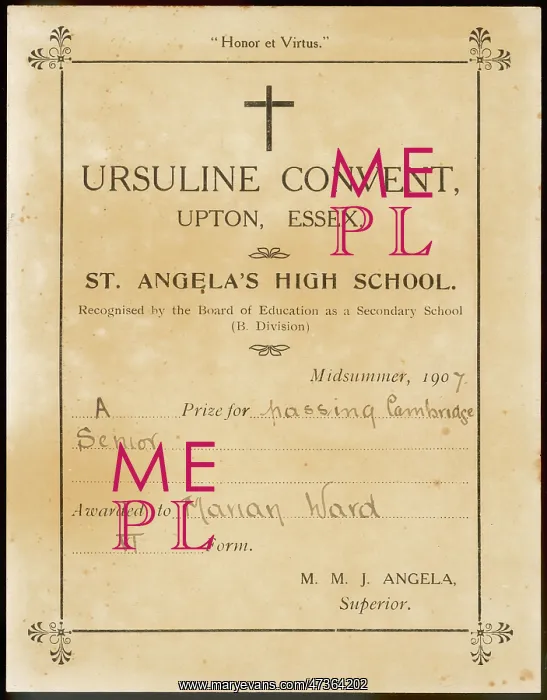 “Honor et Virtus.”
URSULINE CONVENT,
UPTON, ESSEX.
ST. ANGELA'S HIGH SCHOOL.
Recognised by the Board of Education as a Secondary School
(B. Division)
Midsummer, 1907.
A Prize for passing Cambridge
Senior
Awarded to Marian Ward
Form.
M. M. J. ANGELA,
Superior.
ME
PL
ME
PL
www.maryevans.com/47364202